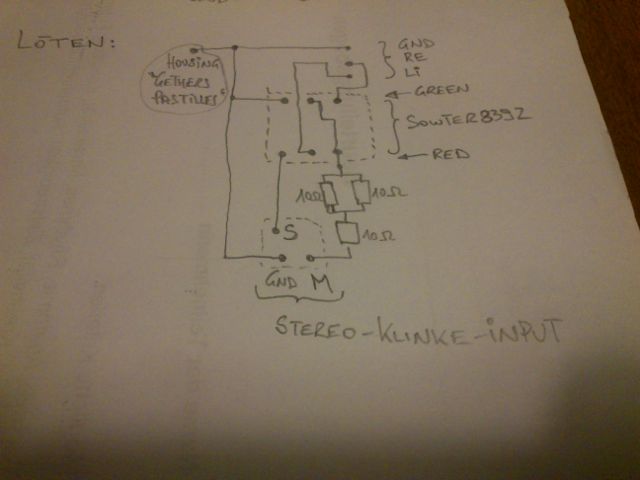 LÖTEN:
HOUSING
"GETHERS
PASTILLES"
GND
RE
Li
GREEN
SOWTER8392
RED
10Ω
10Ω
10Ω
S
GND M
STEREO-KLINKE-iNPUT